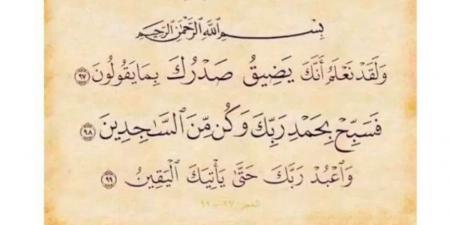 بِسْمِ ٱللَّهِ ٱلرَّحْمَٰنِ ٱلرَّحِيمِ
وَلَقَدْ نَعْلَمُ أَنَّكَ يَضِيقُ صَدْرُكَ بِمَا يَقُولُونَ ٩٧
فَسَبِّحْ بِحَمْدِ رَبِّكَ وَكُن مِّنَ ٱلسَّٰجِدِينَ ٩٨
وَٱعْبُدْ رَبَّكَ حَتَّىٰ يَأْتِيَكَ ٱلْيَقِينُ ٩٩
الحجر: ٩٧ - ٩٩